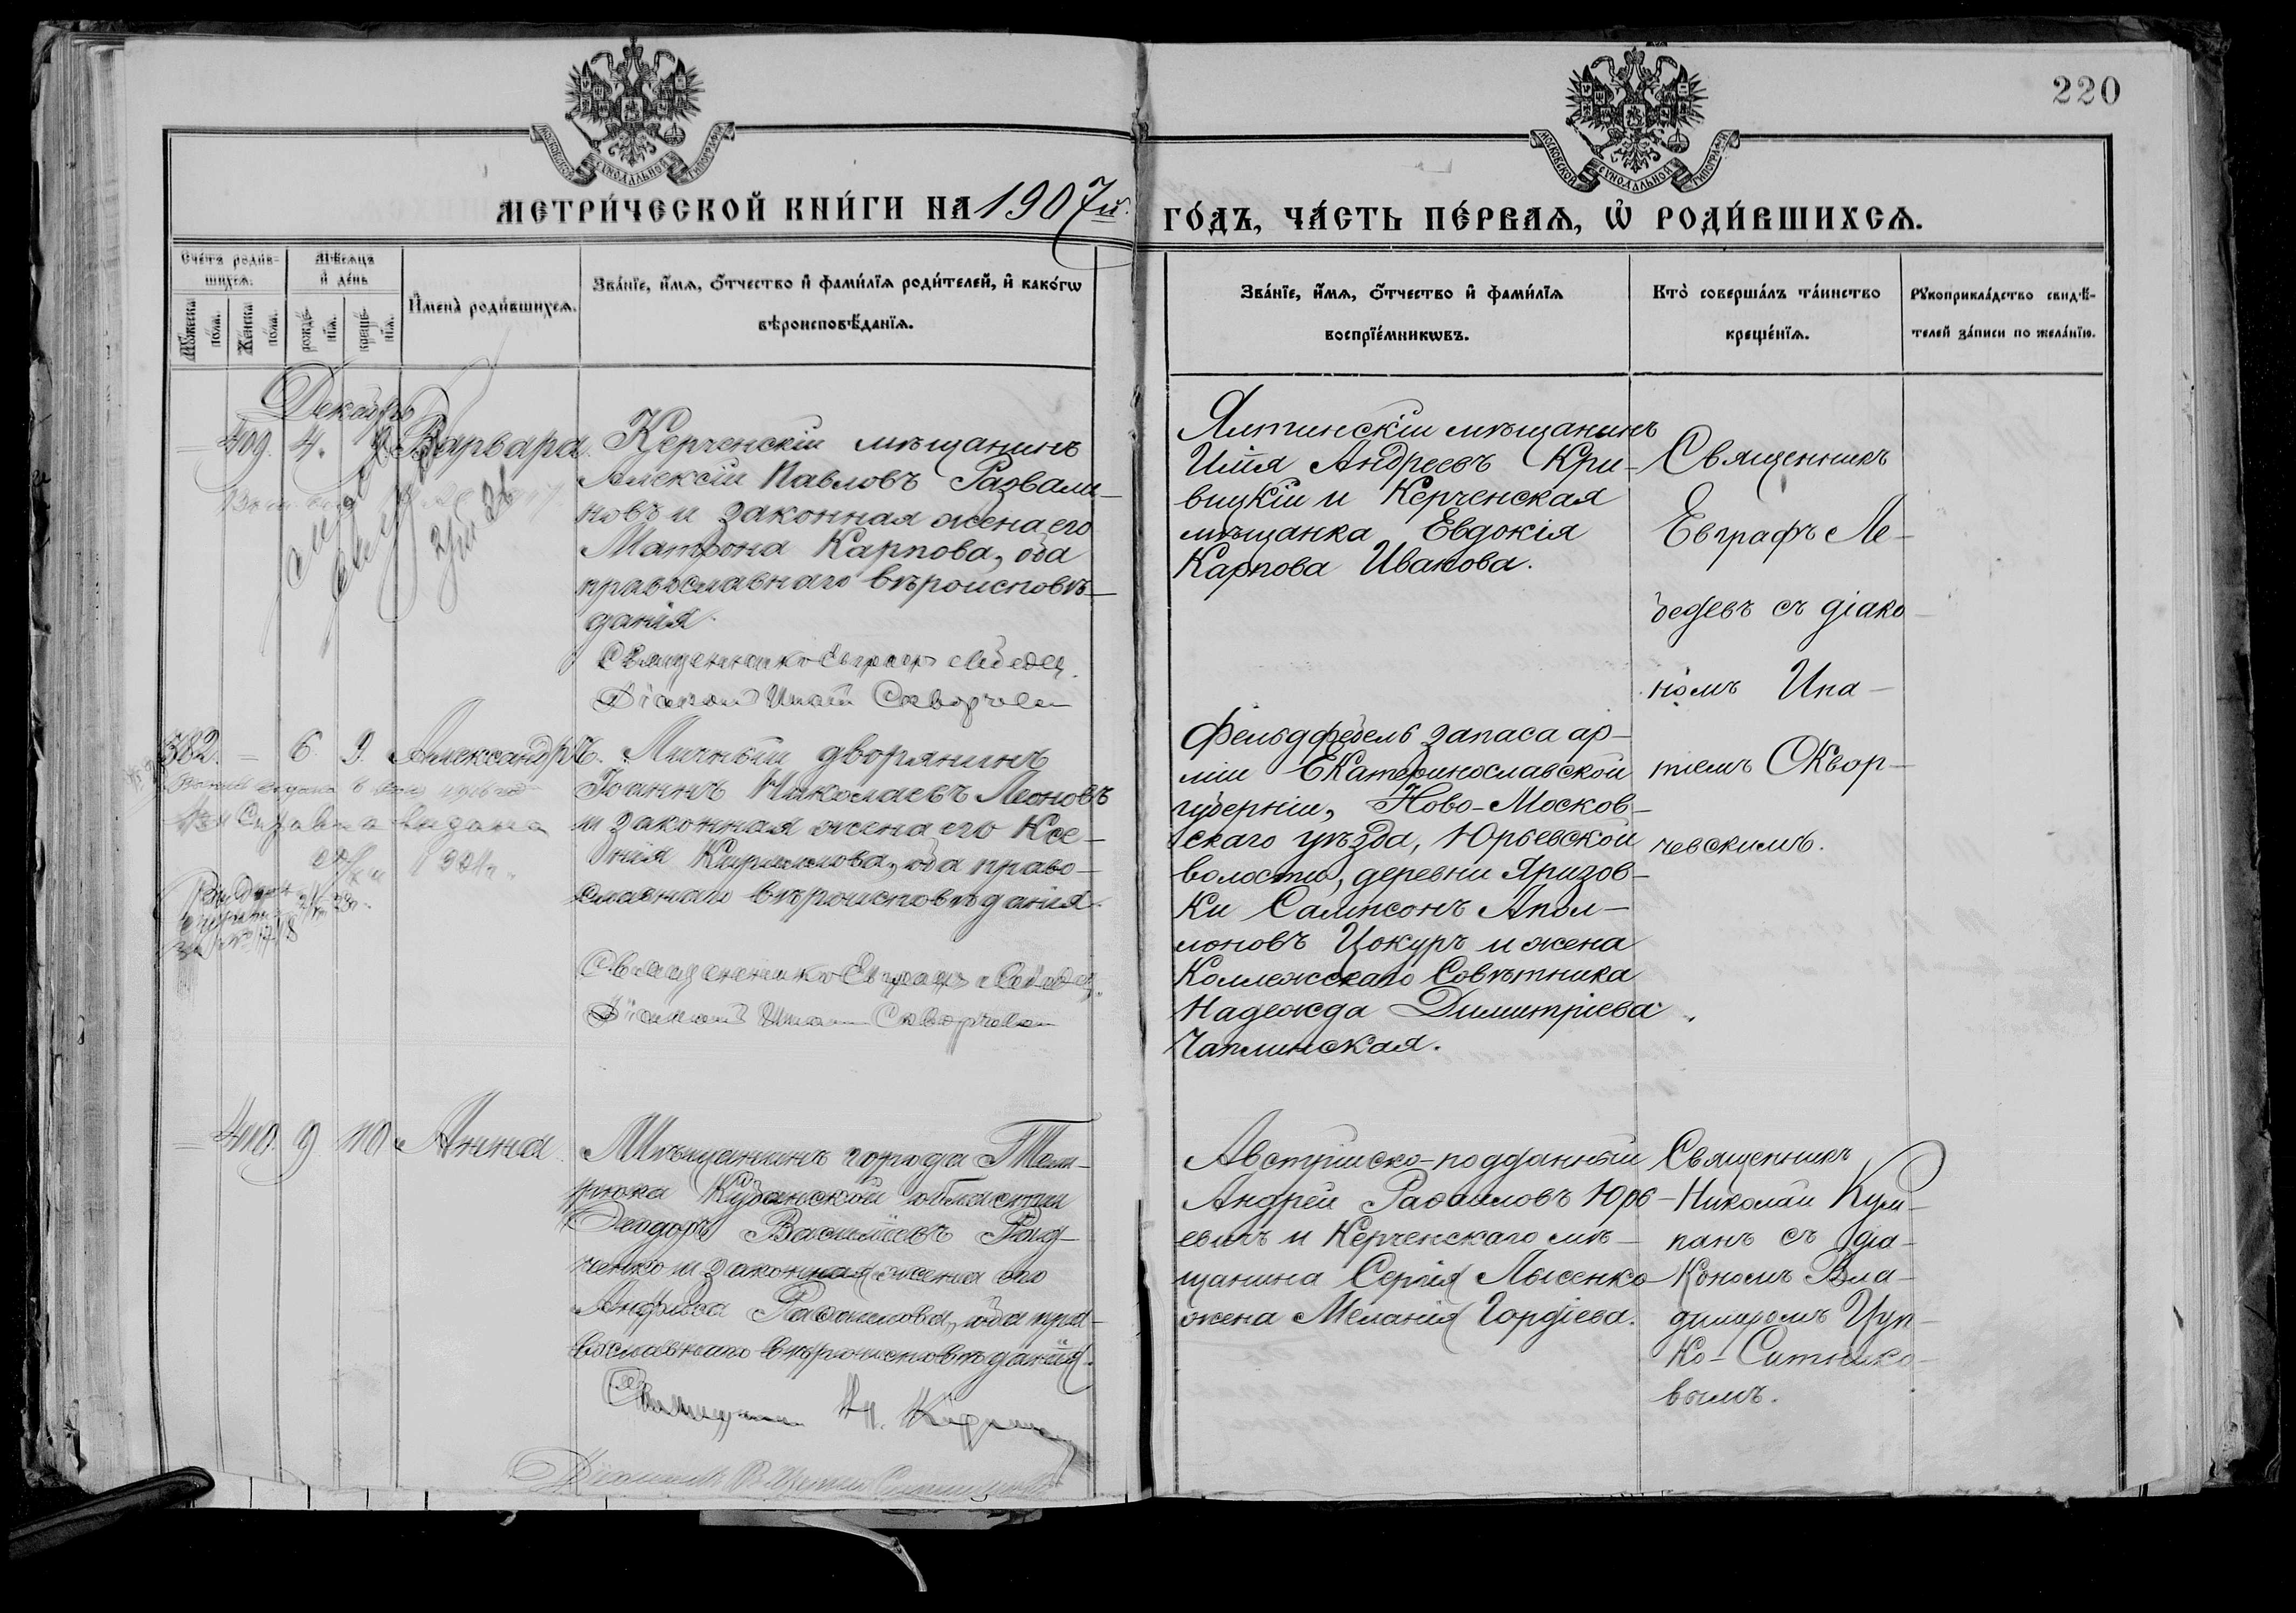 220
МОСКОВСКОЙ СУНОДАЛЬНОЙ ТИПОГРАФІИ
МОСКОВСКОЙ СУНОДАЛЬНОЙ ТИПОГРАФІИ
МЕТРИ́ЧЕСКОЙ КНИ́ГИ НА 1907й
ГО́ДЪ, ЧА́СТЬ ПЕ́РВАѦ, Ѡ РОДИ́ВШИХСѦ.
Сче́тъ роди́в-
шихсѧ.
Мѣ́сѧцъ
и҆ де́нь
Мꙋ́жеска по́ла.
Же́нска по́ла.
рожде́-
нїѧ.
креще́-
нїѧ.
И҆мена̀ роди́вшихсѧ.
Зва́нїе, и҆́мѧ, ѻ҆́тчество и҆ фами́лїѧ роди́телей, и҆ како́гѡ
вѣроисповѣ́данїѧ.
Зва́нїе, и҆́мѧ, ѻ҆́тчество и҆ фами́лїѧ
воспрїе́мникѡвъ.
Кто̀ соверша́лъ та́инство
креще́нїѧ.
Рꙋкоприкла́дство свидѣ́-
телей за́писи по жела́нїю.
Декабрь
409. 4. 9. Варвара.
Керченскій мѣщанинъ
Алексій Павловъ Развали-
новъ и законная жена его
Матрона Карпова, оба
православнаго вѣроисповѣ-
данія.
Священникъ Евграфъ Лебедев
Діаконъ Ипатій Скворчев
Ялтинскій мѣщанинъ
Илія Андреевъ Кри-
вицкій и Керченская
мѣщанка Евдокія
Карпова Иванова.
Священникъ
Евграфъ Ле-
бедевъ съ діако-
номъ Ипа-
тіемъ Сквор-
чевскимъ.
382. — 6. 9. Александръ.
Личный дворянинъ
Іоаннъ Николаевъ Леоновъ
и законная жена его Ксе-
нія Кириллова, оба право-
славнаго вѣроисповѣданія.
Справка выдана
1924г.
Священникъ Евграфъ Лебедев
Діаконъ Ипатій Скворчев
Фельдфебель запаса ар-
міи Екатеринославской
губерніи, Ново-Москов-
скаго уѣзда, Юрьевской
волости, деревни Яризов-
ки Сампсонъ Апол-
лоновъ Цокуръ и жена
Коллежскаго Совѣтника
Надежда Димитріева
Чаплинская.
— 410. 9 10. Анна.
Мѣщанинъ города Тем-
рюка Кубанской области
Ѳеодоръ Васильевъ
ченко и законная жена его
Анфиса Рафаилова, оба пра-
вославнаго вѣроисповѣданія.
Священникъ Н. Курпан
Діаконъ В. Цупко-Ситников
Австрійско-подданный
Андрей Рафаиловъ Юрь-
евичъ и Керченскаго мѣ-
щанина Сергія Лысенко
жена Меланія Гордіева.
Священникъ
Николай Кур-
панъ съ діа-
кономъ Вла-
димиромъ Цуп-
ко-Ситнико-
вымъ.